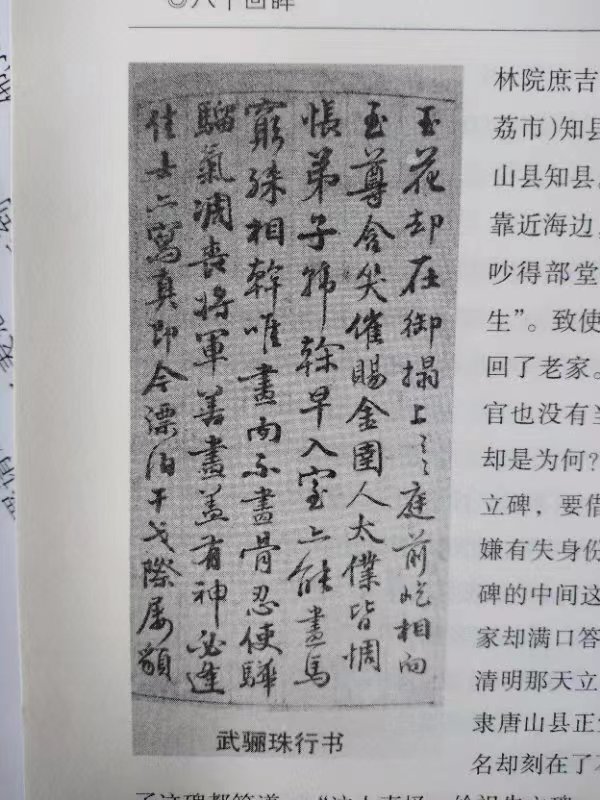 玉花却在御搨上〻〻庭前屹相向
至尊含笑催賜金圉人太僕皆惆
悵弟子韩幹早入室亦能畫馬
窮殊相幹唯畫肉不畫骨忍使驊
騮氣凋喪將軍善畫盖有神必逢
佳士亦寫真即今漂泊干戈際屡貌
武骊珠行书
林院庶吉
荔市)知县
山县知县。
靠近海边，
吵得部堂
生”。致使
回了老家。
官也没有当
却是为何?
立碑，要借
嫌有失身份
碑的中间这
家却满口答
清明那天立
隶唐山县正
名却刻在了